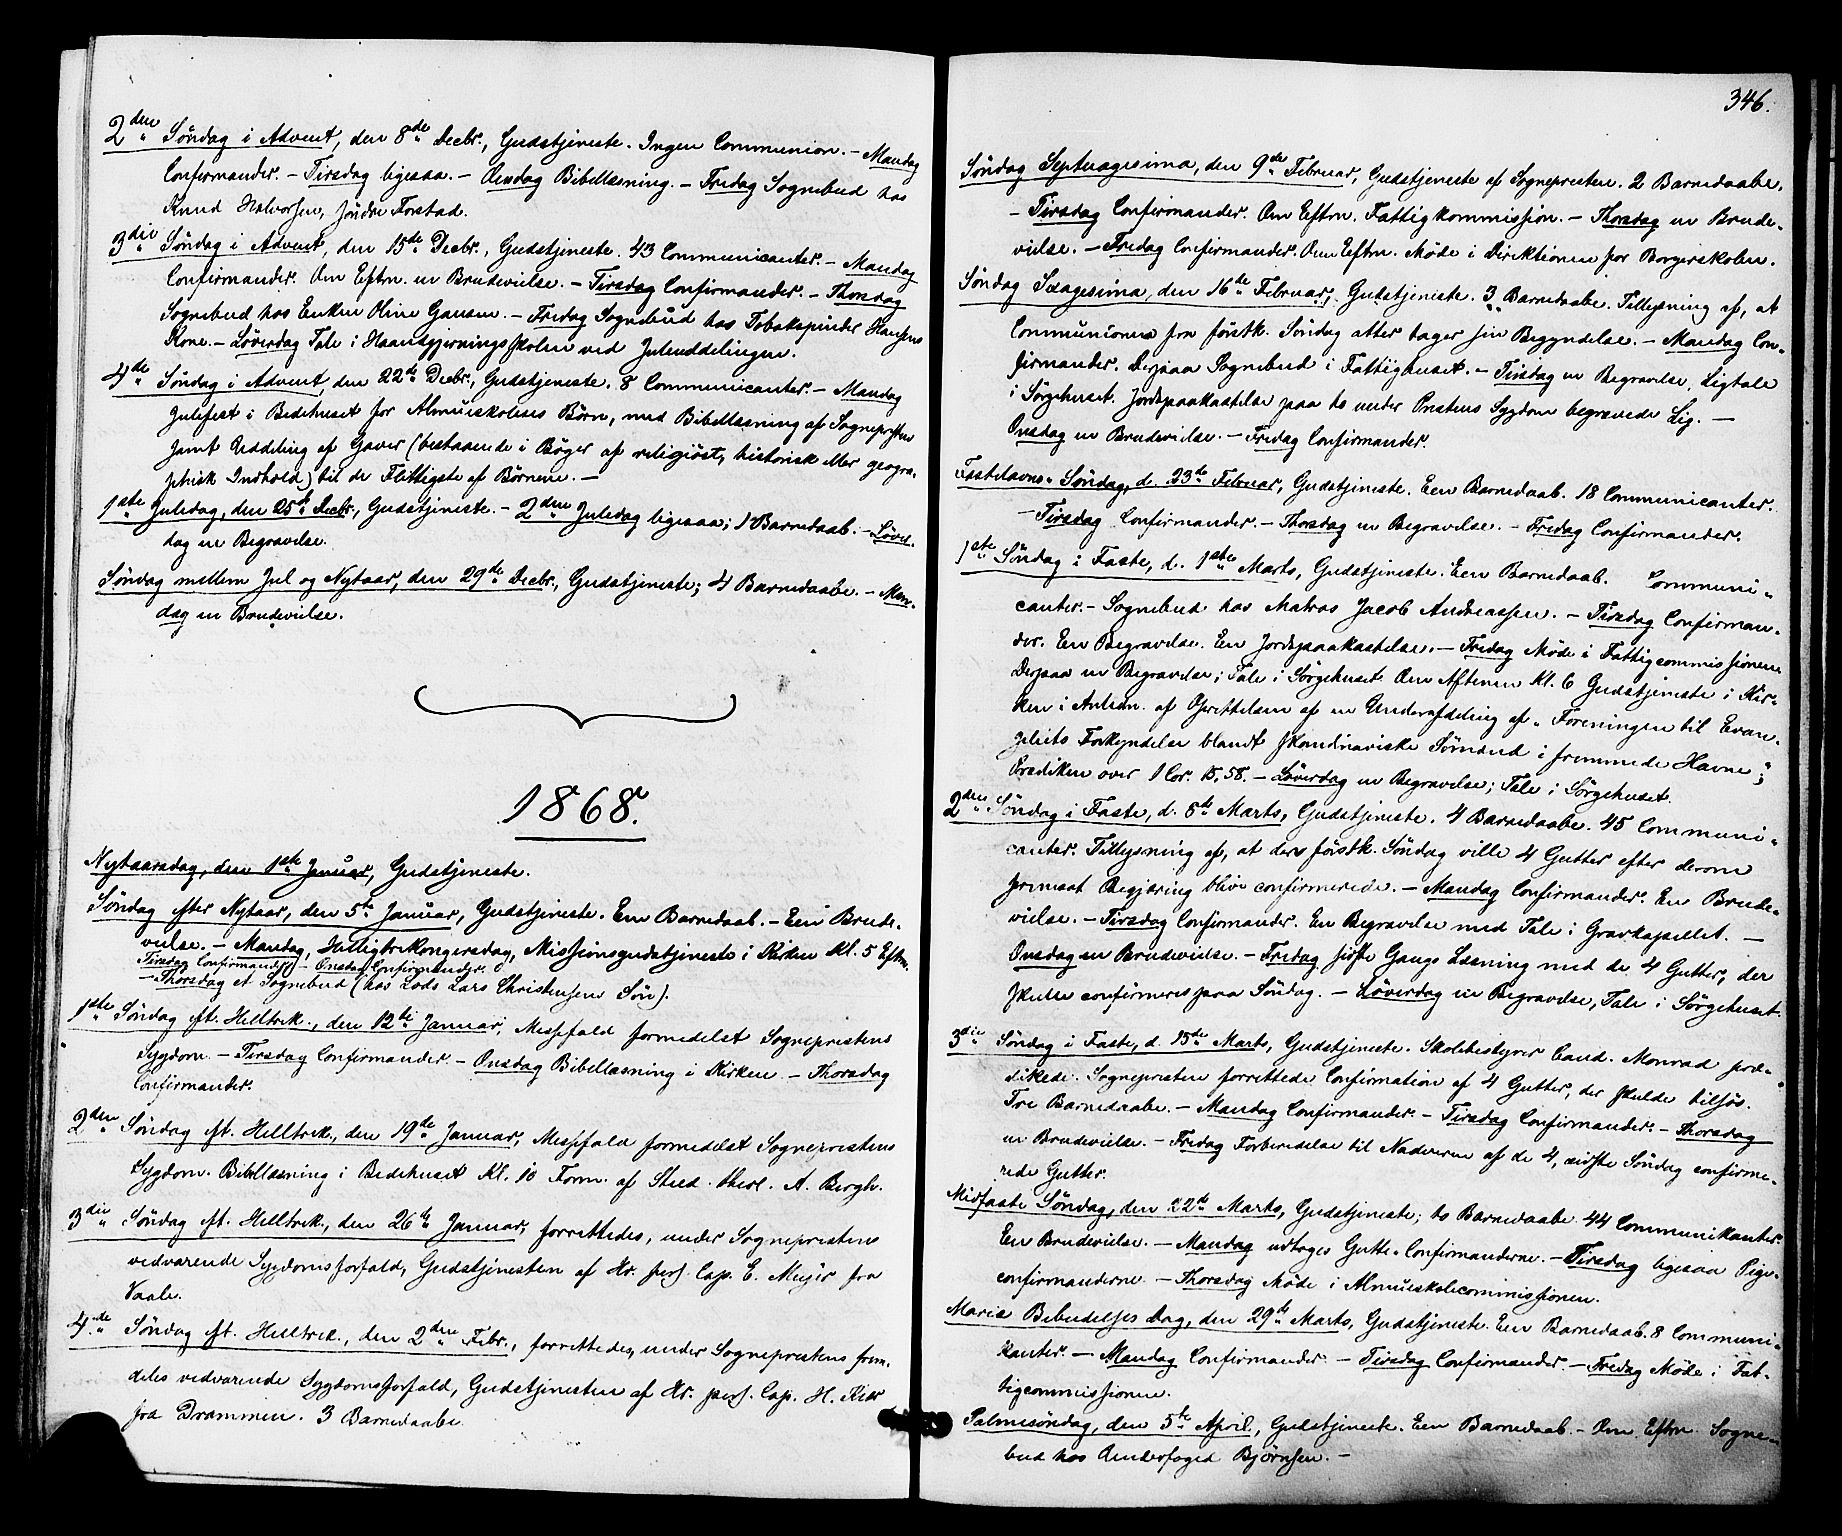 2den Søndag i Advent, den 8de Decbr., Gudstjeneste. Ingen Communion. - Mandag
Confirmander. - Tirsdag ligesaa. - Onsdag Bibellæsning. - Fredag Sognebud hos
Knud Halvorsen, Søndre Forstad.
3die Søndag i Advent, den 15de Decbr., Gudstjeneste. 43 Communicanter. - Mandag
Confirmander. Om Eftm. en Brudevielse. - Tirsdag Confirmander. - Thorsdag
Sognebud hos Enken Oline Gansen. - Fredag Sognebud hos Tobakspinder Hansens
Kone. - Løverdag Tale i Haandgjerningsskolen ved Juleuddelingen.
4de Søndag i Advent, den 22de Decbr., Gudstjeneste. 8 Communicanter. - Mandag
Julefest i Bedehuset for Almueskolens Børn, med Bibellæsning af Sognepresten
samt Uddeling af Gaver (bestaaende i Bøger af religiøst, historisk eller geogra-
phisk Indhold) til de Flittigste af Børnene. -
1ste Juledag, den 25de Decbr., Gudstjeneste. - 2den Juledag ligesaa; 1 Barnedaab. - Løver-
dag en Begravelse.
Søndag mellem Jul og Nytaar, den 29de Decbr., Gudstjeneste; 4 Barnedaabe. - Man-
dag en Brudevielse.
1868.
Nytaarsdag, den 1ste Januar, Gudstjeneste.
Søndag efter Nytaar, den 5te Januar, Gudstjeneste. Een Barnedaab. - Een Brude-
vielse. - Mandag, Helligtrekongersdag, Missionsgudstjeneste i Kirken Kl. 5 Eftm.
Tirsdag Confirmander - Onsdag Confirmander.
- Thorsdag et Sognebud (hos Lods Lars Christensens Søn).
1ste Søndag eft. Helltrek., den 12te Januar, Messefald formedelst Sogneprestens
Sygdom. - Tirsdag Confirmander - Onsdag Bibellæsning i Kirken - Thorsdag
Confirmander.
2den Søndag eft. Helltrek., den 19de Januar, Messefald formedelst Sogneprestens
Sygdom. Bibellæsning i Bedehuset Kl. 10 Form. af Stud. theol. A. Bergh.
3die Søndag eft. Helltrek., den 26de Januar, forrettedes, under Sogneprestens
vedvarende Sygdomsforfald, Gudstjenesten af Hr. pers. Cap. E. Meyer fra
Vaale.
4de Søndag eft. Helltrek., den 2den Febr., forrettedes, under Sogneprestens frem-
deles vedvarende Sygdomsforfald, Gudstjenesten af Hr. pers. Cap. H. Kiær
fra Drammen. 3 Barnedaabe.
346.
Søndag Septuagesima, den 9de Februar, Gudstjeneste af Sognepresten. 2 Barnedaabe.
- Tirsdag Confirmander. Om Eftm. Fattigkommission. - Thorsdag en Brude-
vielse. - Fredag Confirmander. Om Eftm. Møde i Direktionen for Borgerskolen.
Søndag Sexagesima, den 16de Februar, Gudstjeneste. 3 Barnedaabe. Tillysning af, at
Communionen fra førstk. Søndag atter tager sin Begyndelse. - Mandag Con-
firmander. Desspaa Sognebud i Fattighuset. - Tirsdag en Begravelse, Ligtale
i Sørgehuset. Jordspaakastelse paa to under Prestens Sygdom begravede Lig. -
Onsdag en Brudevielse. - Fredag Confirmander.
Fastelavns-Søndag, d. 23de Februar, Gudstjeneste. Een Barnedaab. 18 Communicanter.
- Tirsdag Confirmander. - Thorsdag en Begravelse. - Fredag Confirmander.
1ste Søndag i Faste, d. 1ste Marts, Gudstjeneste. Een Barnedaab. Communi-
canter. - Sognebud hos Matros Jacob Andreassen. - Tirsdag Confirman-
der. En Begravelse. En Jordspaakastelse. - Fredag Møde i Fattigcommissionen
Desspaa en Begravelse; Tale i Sørgehuset. Om Aftenen Kl. 6 Gudstjeneste i Kir-
ken i Anledn. af Oprettelsen af en Underafdeling af "Foreningen til Evan-
geliets Forkyndelse blandt skandinaviske Sømænd i fremmede Havne";
Prædiken over 1 Cor. 15, 58. - Løverdag en Begravelse; Tale i Sørgehuset.
2den Søndag i Faste, d. 8de Marts, Gudstjeneste. 4 Barnedaabe. 45 Communi-
canter. Tillysning af, at der førstk. Søndag ville 4 Gutter efter derom
fremsat Begjæring blive confirmerede. - Mandag Confirmander. En Brude-
vielse. - Tirsdag Confirmander. En Begravelse med Tale i Gravkapellet. -
Onsdag en Brudevielse. - Fredag sidste Gangs Læsning med de 4 Gutter, der
skulle confirmeres paa Søndag. - Løverdag en Begravelse, Tale i Sørgehuset.
3die Søndag i Faste, d. 15de Marts, Gudstjeneste. Skolebestyrer Cand. Monrad præ-
dikede. Sognepresten forrettede Confirmation af 4 Gutter, der skulde tilsøs.
Tre Barnedaabe. - Mandag Confirmander. - Tirsdag Confirmander. - Thorsdag
en Brudevielse. - Fredag Forberedelse til Nadveren af de 4, sidste Søndag confirme-
rede Gutter.
Midfaste Søndag, den 22de Marts, Gudstjeneste; to Barnedaabe. 44 Communikanter.
Een Brudevielse. - Mandag udtoges Gutte-Confirmanderne. - Tirsdag ligesaa Pige-
confirmanderne. - Thorsdag Møde i Almueskolecommissionen.
Mariæ Bebudelses Dag, den 29de Marts, Gudstjeneste. Een Barnedaab. 8 Communi-
kanter. - Mandag Confirmander. - Tirsdag Confirmander. - Fredag Møde i Fat-
tigcommissionen.
Palmesøndag, den 5te April, Gudstjeneste. Een Barnedaab. - Om Eftm. Sogne-
bud hos Underfoged Bjørnsen. -